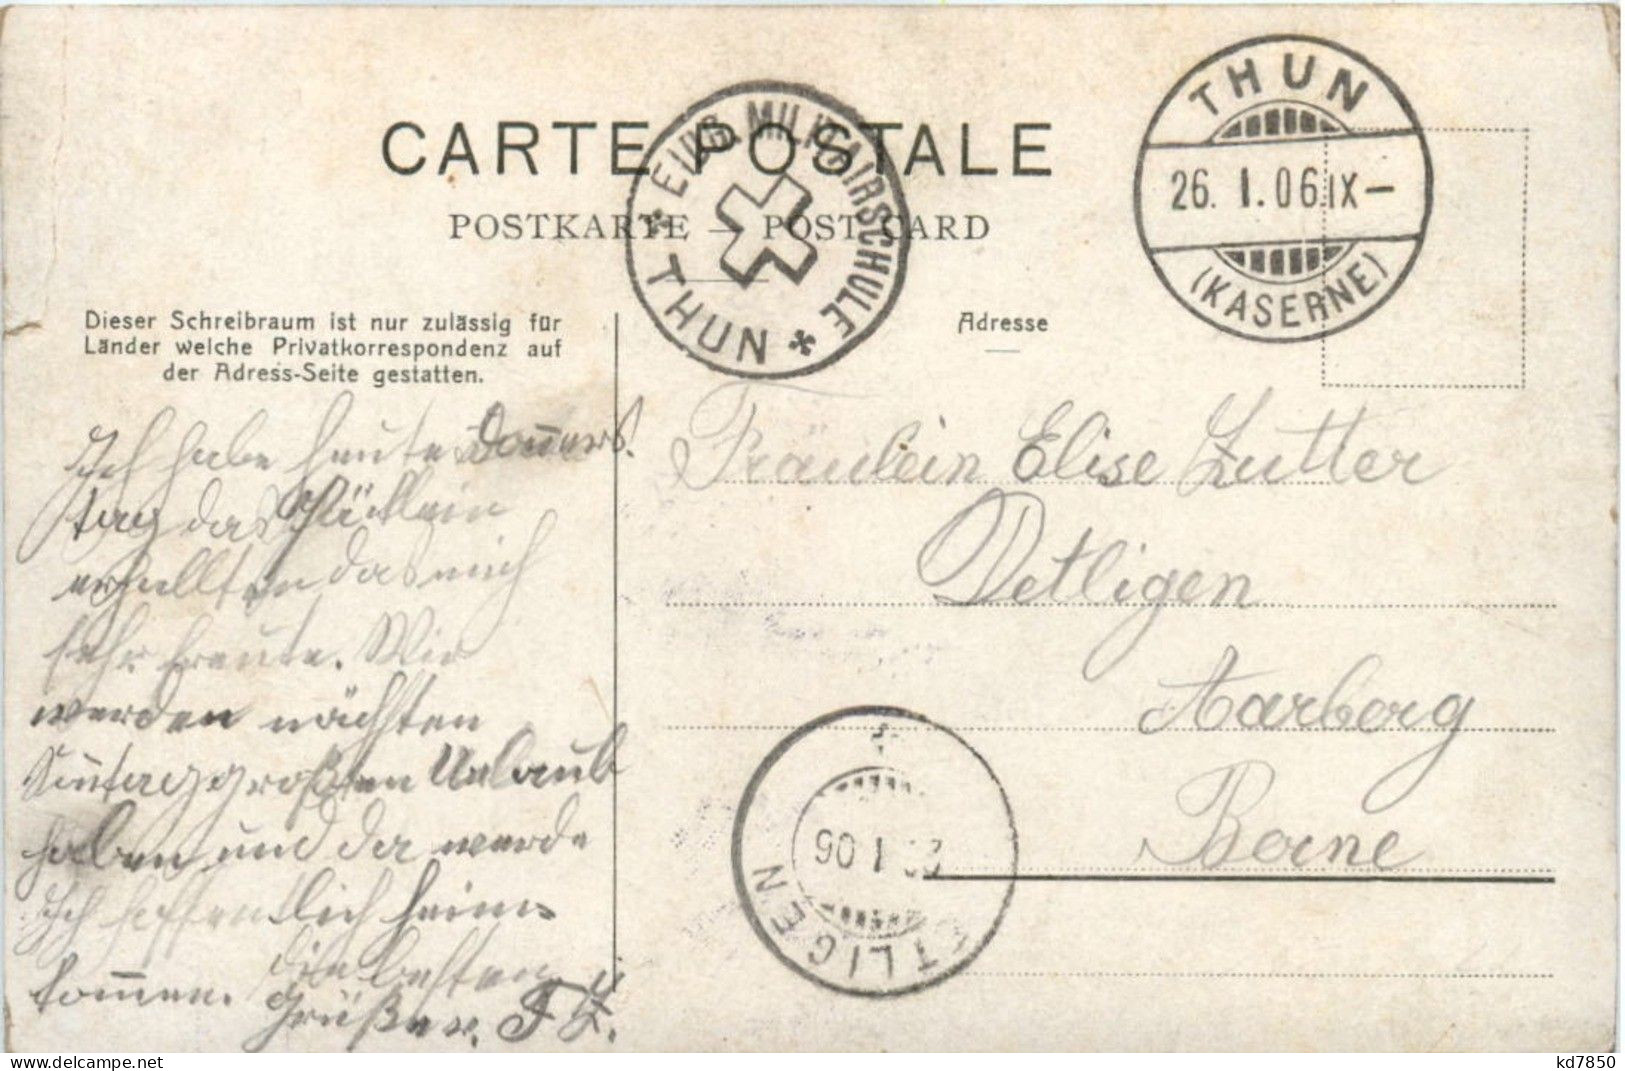 CARTE POSTALE
POSTKARTE — POST CARD
* EIDG. MILITAIRSCHULE *
THUN
THUN
26. I. 06 IX–
(KASERNE)
Dieser Schreibraum ist nur zulässig für
Länder welche Privatkorrespondenz auf
der Adress-Seite gestatten.
Adresse
Ich habe heute Donners
tag das Päcklein
erhalten das mich
sehr freute. Wir
werden nächsten
Sontag großen Urlaub
haben und da werde
Ich hoffentlich heim
kommen. die besten
Grüße v. F Z.
Fräulein Elise Zutter
Detligen
Aarberg
Berne
I 06
TLIGEN
www.delcampe.net
kd7850